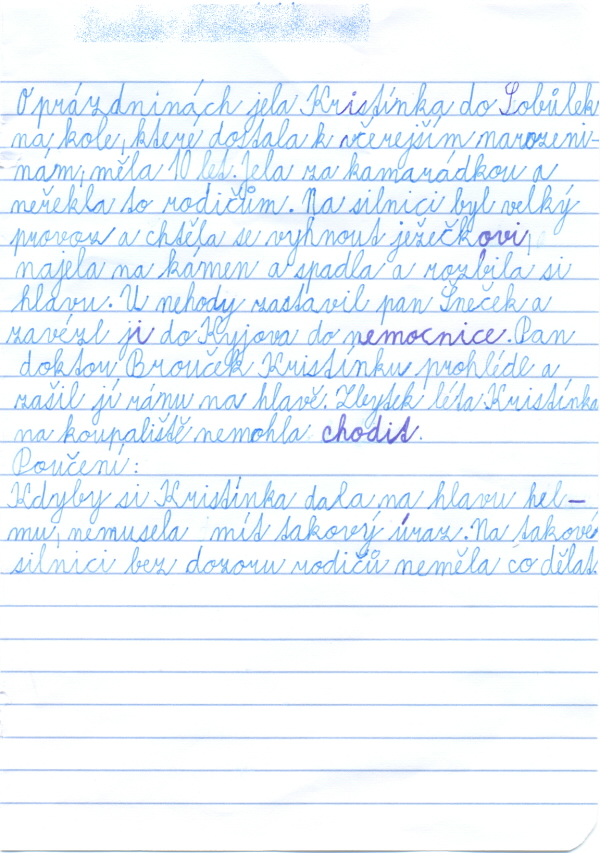 O prázdninách jela Kristínka do Sobůlek
na kole, které dostala k včerejším narozeni-
nám, měla 10 let. Jela za kamarádkou a
neřekla to rodičům. Na silnici byl velký
provoz a chtěla se vyhnout ježečkovi,
najela na kámen a spadla a rozbila si
hlavu. U nehody zastavil pan Šneček a
zavézl ji do Kyjova do nemocnice. Pan
doktou Brouček Kristínku prohléde a
zašil jí ránu na hlavě. Zbytek léta Kristínka
na koupaliště nemohla chodit.
Poučení:
Kdyby si Kristínka dala na hlavu hel-
mu, nemusela mít takový úraz. Na takové
silnici bez dozoru rodičů neměla co dělat.